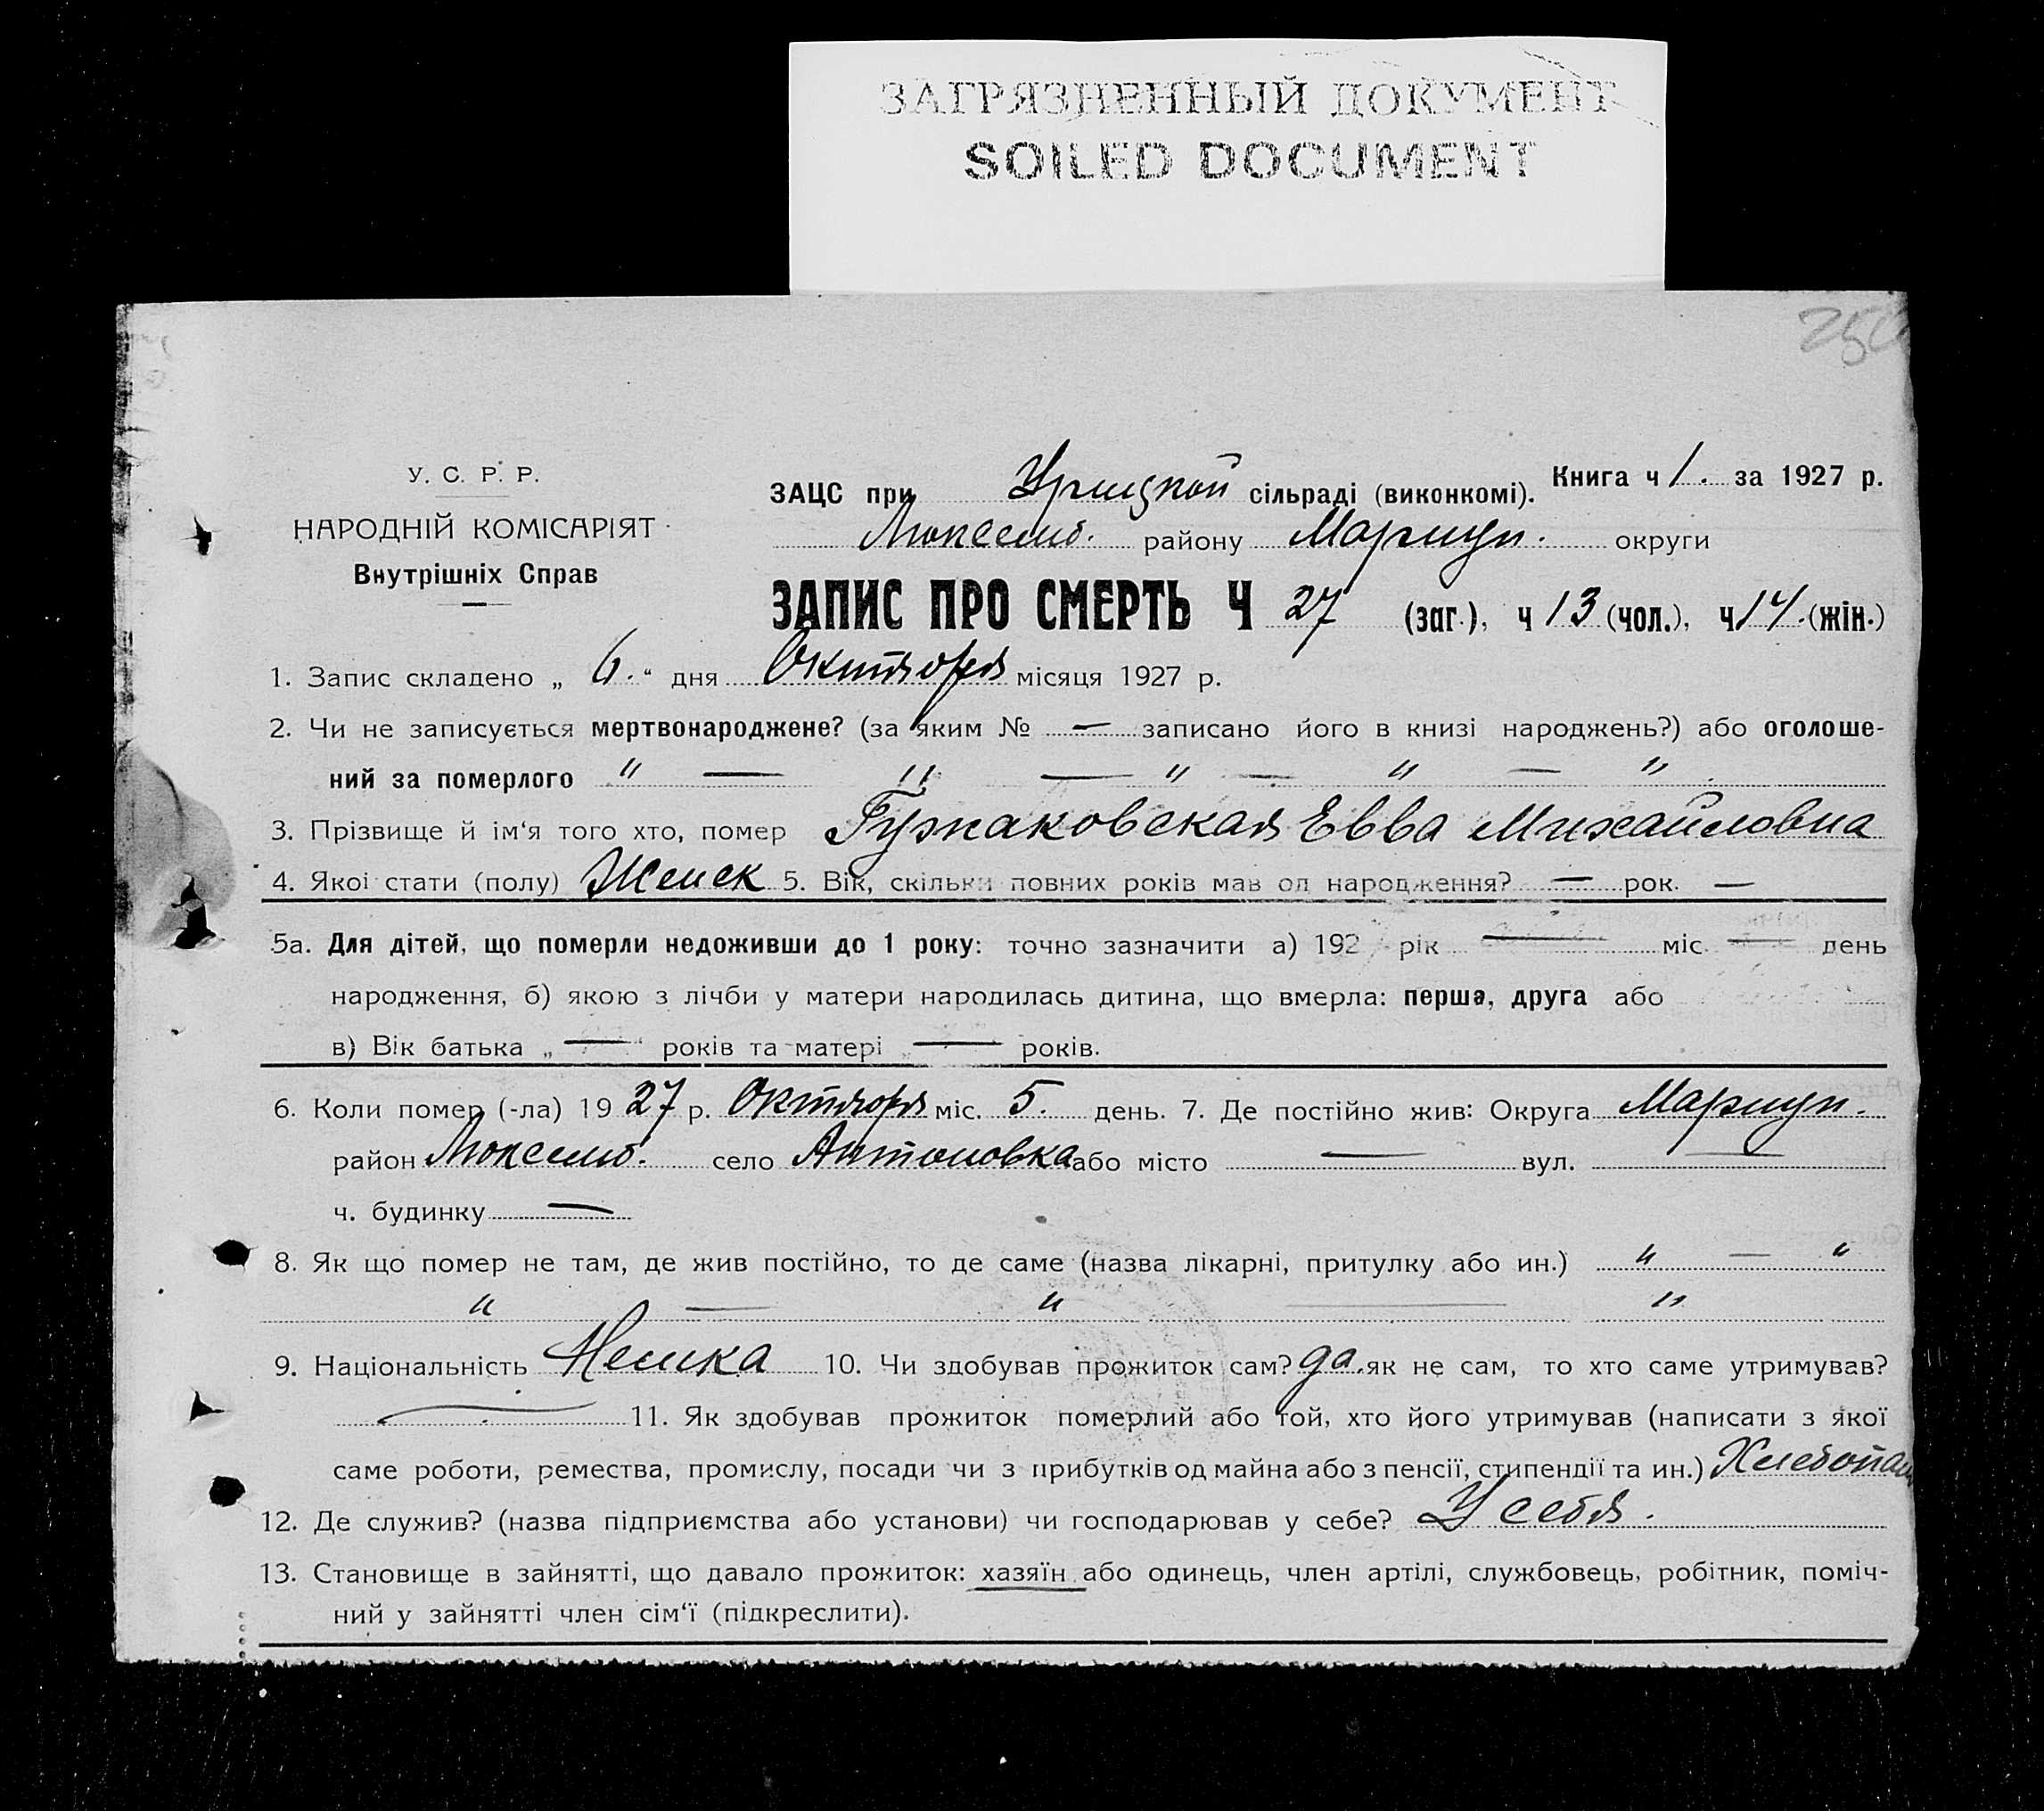 ЗАГРЯЗНЕННЫЙ ДОКУМЕНТ
SOILED DOCUMENT
У. С. Р. Р.
НАРОДНІЙ КОМІСАРІЯТ
Внутрішніх Справ
ЗАЦС при Урицкой сільраді (виконкомі). Книга ч 1. за 1927 р.
Люксемб. району Мариуп. округи
ЗАПИС ПРО СМЕРТЬ Ч 27 (заг.), ч 13 (чол.), ч 14. (жін.)
1. Запис складено „ 6. “ дня Октября місяця 1927 р.
2. Чи не записується мертвонароджене? (за яким № — записано його в книзі народжень?) або оголоше-
ний за померлого " — " — " — " — "
3. Прізвище й ім‘я того хто, помер Гужаковская Евва Михайловна
4. Якоі стати (полу) Женск 5. Вік, скільки повних років мав од народження? — рок. —
5а. Для дітей, що померли недоживши до 1 року: точно зазначити а) 192 рік — міс. — день
народження, б) якою з лічби у матери народилась дитина, що вмерла: перша, друга або
в) Вік батька „ — “ років та матері „ — років.
6. Коли помер (-ла) 19 27 р. Октября міс. 5. день. 7. Де постійно жив: Округа Мариуп.
район Люксемб. село Антоновка або місто — вул. —
ч. будинку —
8. Як що помер не там, де жив постійно, то де саме (назва лікарні, притулку або ин.) " — "
" — " — "
9. Національність Немка 10. Чи здобував прожиток сам? да. як не сам, то хто саме утримував?
— 11. Як здобував прожиток померлий або той, хто його утримував (написати з якої
саме роботи, ремества, промислу, посади чи з прибутків од майна або з пенсії, стипендії та ин.) Хлебопаш
12. Де служив? (назва підприємства або установи) чи господарював у себе? У себя.
13. Становище в зайнятті, що давало прожиток: хазяїн або одинець, член артілі, службовець, робітник, поміч-
ний у зайнятті член сім‘ї (підкреслити).